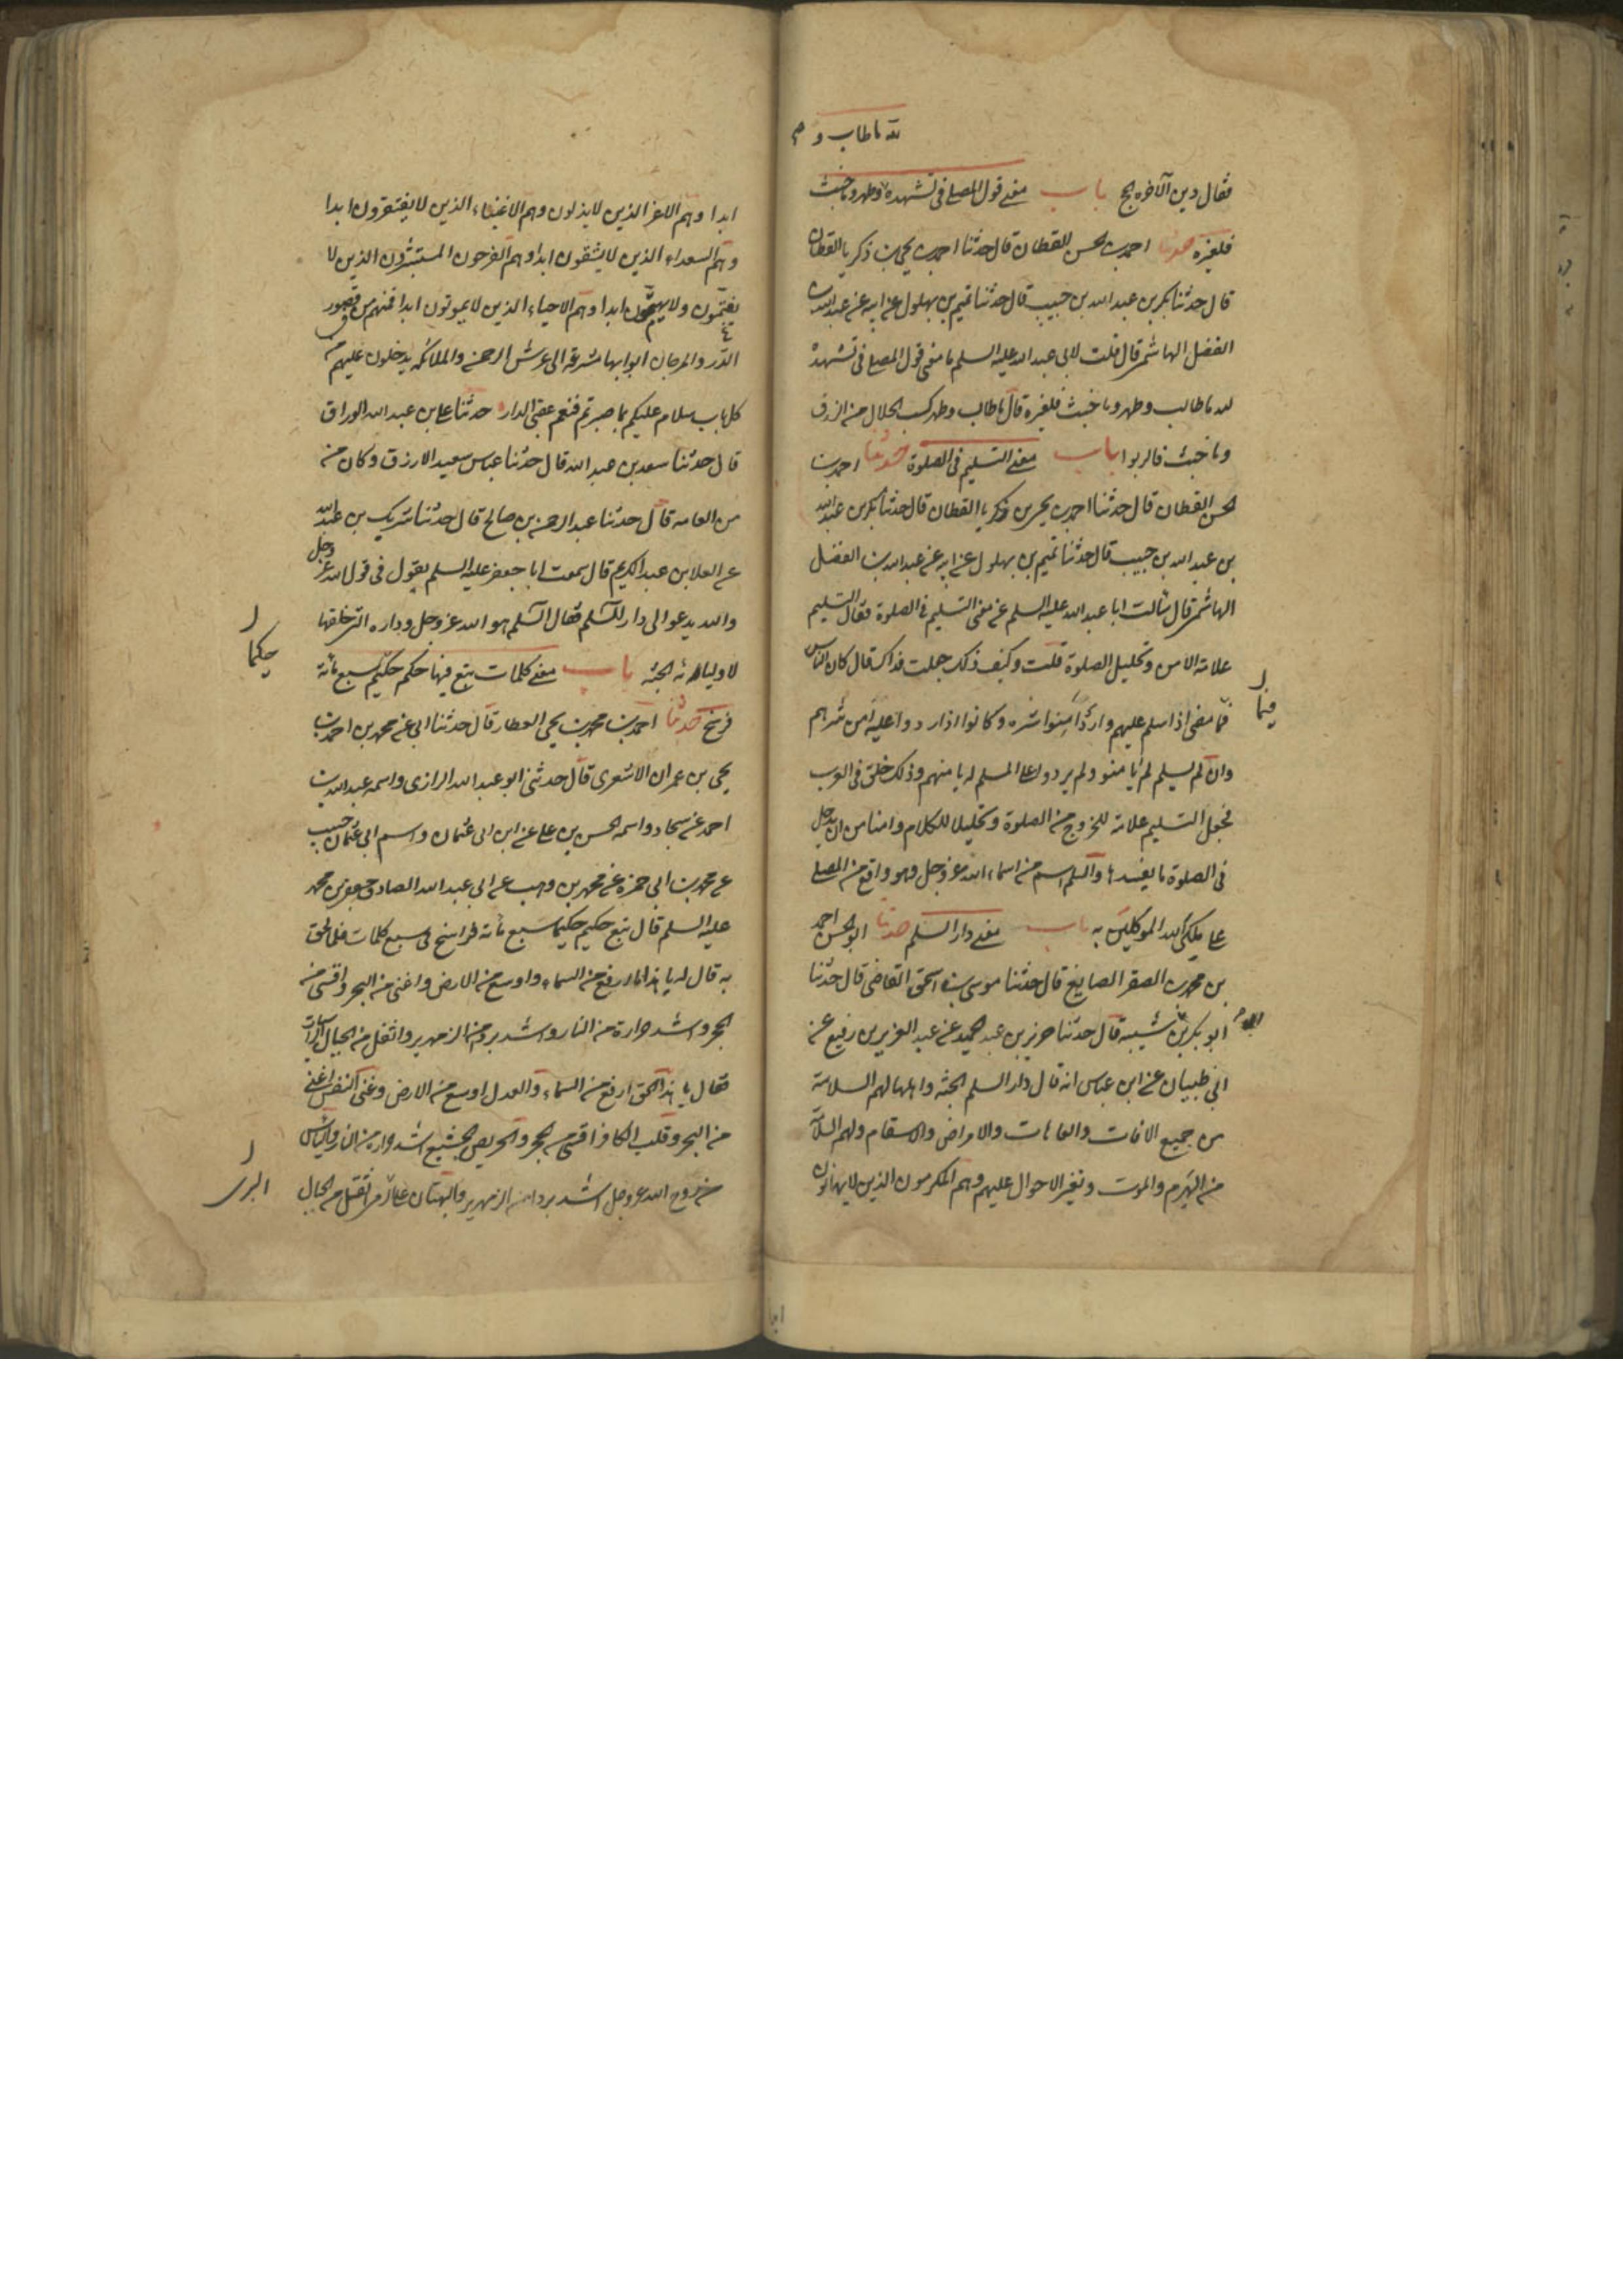 لله ما طاب و
فقال دين الآخوه لج باب معنى قول المصلى فى تشهده وطهر وما خبث
فلغيره حدثنا احمد بن الحسن القطان قال حدثنا احمد بن يحيى بن زكريا القطان
قال حدثنا بكر بن عبد الله بن حبيب قال حدثنا تميم بن بهلول عن ابيه عن عبد الله بن
الفضل الهاشمى قال قلت لابى عبد الله عليه السلم ما معنى قول المصلى فى تشهده
لله ما طاب وطهر وما خبث فلغيره قال ما طاب وطهر كسب الحلال من الرزق
وما خبث فالربوا باب معنى التسليم فى الصلوة حدثنا احمد بن
الحسن القطان قال حدثنا احمد بن يحيى بن زكريا القطان قال حدثنا بكر بن عبد الله
بن عبد الله بن حبيب قال حدثنا تميم بن بهلول عن ابيه عن عبد الله بن الفضل
الهاشمى قال سالت ابا عبد الله عليه السلم عن معنى التسليم فى الصلوة فقال التسليم
علامة الامن وتحليل الصلوة قلت وكيف ذلك جعلت فداك قال كان الناس
فيما
فيما مضى اذا سلم عليهم وارد امنوا شره وكانوا اذا ردوا عليه امن شرهم
وان لم يسلم لم يامنوه ولم يردوا على المسلم لم يامنهم وذلك خلق فى العرب
فجعل التسليم علامة للخروج من الصلوة وتحليلا للكلام وامنا من ان يدخل
فى الصلوة ما يفسدها والسلم اسم من اسماء الله عز وجل وهو واقع من المصلى
على ملكى الله الموكلين به باب معنى دار السلم حدثنا ابو الحسن احمد
بن محمد بن الصقر الصايغ قال حدثنا موسى بن اسحق القاضى قال حدثنا
ابو بكر بن شيبه قال حدثنا حريز بن عبد الحميد عن عبد العزيز بن رفيع عن
ابى ظبيان عن ابن عباس انه قال دار السلم الجنه واهلها لهم السلامة
من جميع الافات والعاهات والامراض والاسقام ولهم السلامة
من الهرم والموت وتغير الاحوال عليهم وهم المكرمون الذين لا يهانون
ابدا وهم الاعزا الذين لا يذلون وهم الاغنياء الذين لا يفتقرون ابدا
وهم السعداء الذين لا يشقون ابدا وهم الفرحون المستبشرون الذين لا
يغتمون ولا يهتمون ابدا وهم الاحياء الذين لا يموتون ابدا فهم من قصور
الدر والمرجان ابوابها مشرفة الى عرش الرحمن والملائكة يدخلون عليهم من
كل باب سلام عليكم بما صبرتم فنعم عقبى الدار حدثنا على بن عبد الله الوراق
قال حدثنا سعد بن عبد الله قال حدثنا عباس سعيد الارزق وكان من
من العامه قال حدثنا عبد الرحمن بن صالح قال حدثنا شريك بن عبد الله
عن العلا بن عبد الكريم قال سمعت ابا جعفر عليه السلم يقول فى قول الله عز وجل
والله يدعو الى دار السلم فقال السلم هو الله عز وجل وداره التى خلقها
لاوليائه الجنة باب معنى كلمات تبع فيها حكم حكيم سبع مائة
حكيما
فرسخ حدثنا احمد بن محمد بن يحيى العطار قال حدثنا ابى عن محمد بن احمد بن
يحيى بن عمران الاشعرى قال حدثنى ابو عبد الله الرازى واسمه عبد الله بن
احمد عن سجاده واسمه الحسن بن على عن ابن ابى عثمان واسم ابى عثمان حبيب
عن محمد بن ابى حمزه عن محمد بن وهب عن ابى عبد الله الصادق جعفر بن محمد
عليه السلم قال تبع حكيم حكيما سبع مائة فراسخ فى سبع كلمات فلما لحق
به قال له يا هذا ما ارفع من السماء واوسع من الارض واغنى من البحر واقسى من
الحجر واشد حرارة من النار واشد بردا من الزمهرير واثقل من الجبال الراسيات
فقال يا هذا الحق ارفع من السماء والعدل اوسع من الارض وغنى النفس اغنى
من البحر وقلب الكافر اقسى من الحجر والحريص الجشع اشد حرارة من النار والياس
من روح الله عز وجل اشد بردا من الزمهرير والبهتان على اثقل من الجبال
البرى